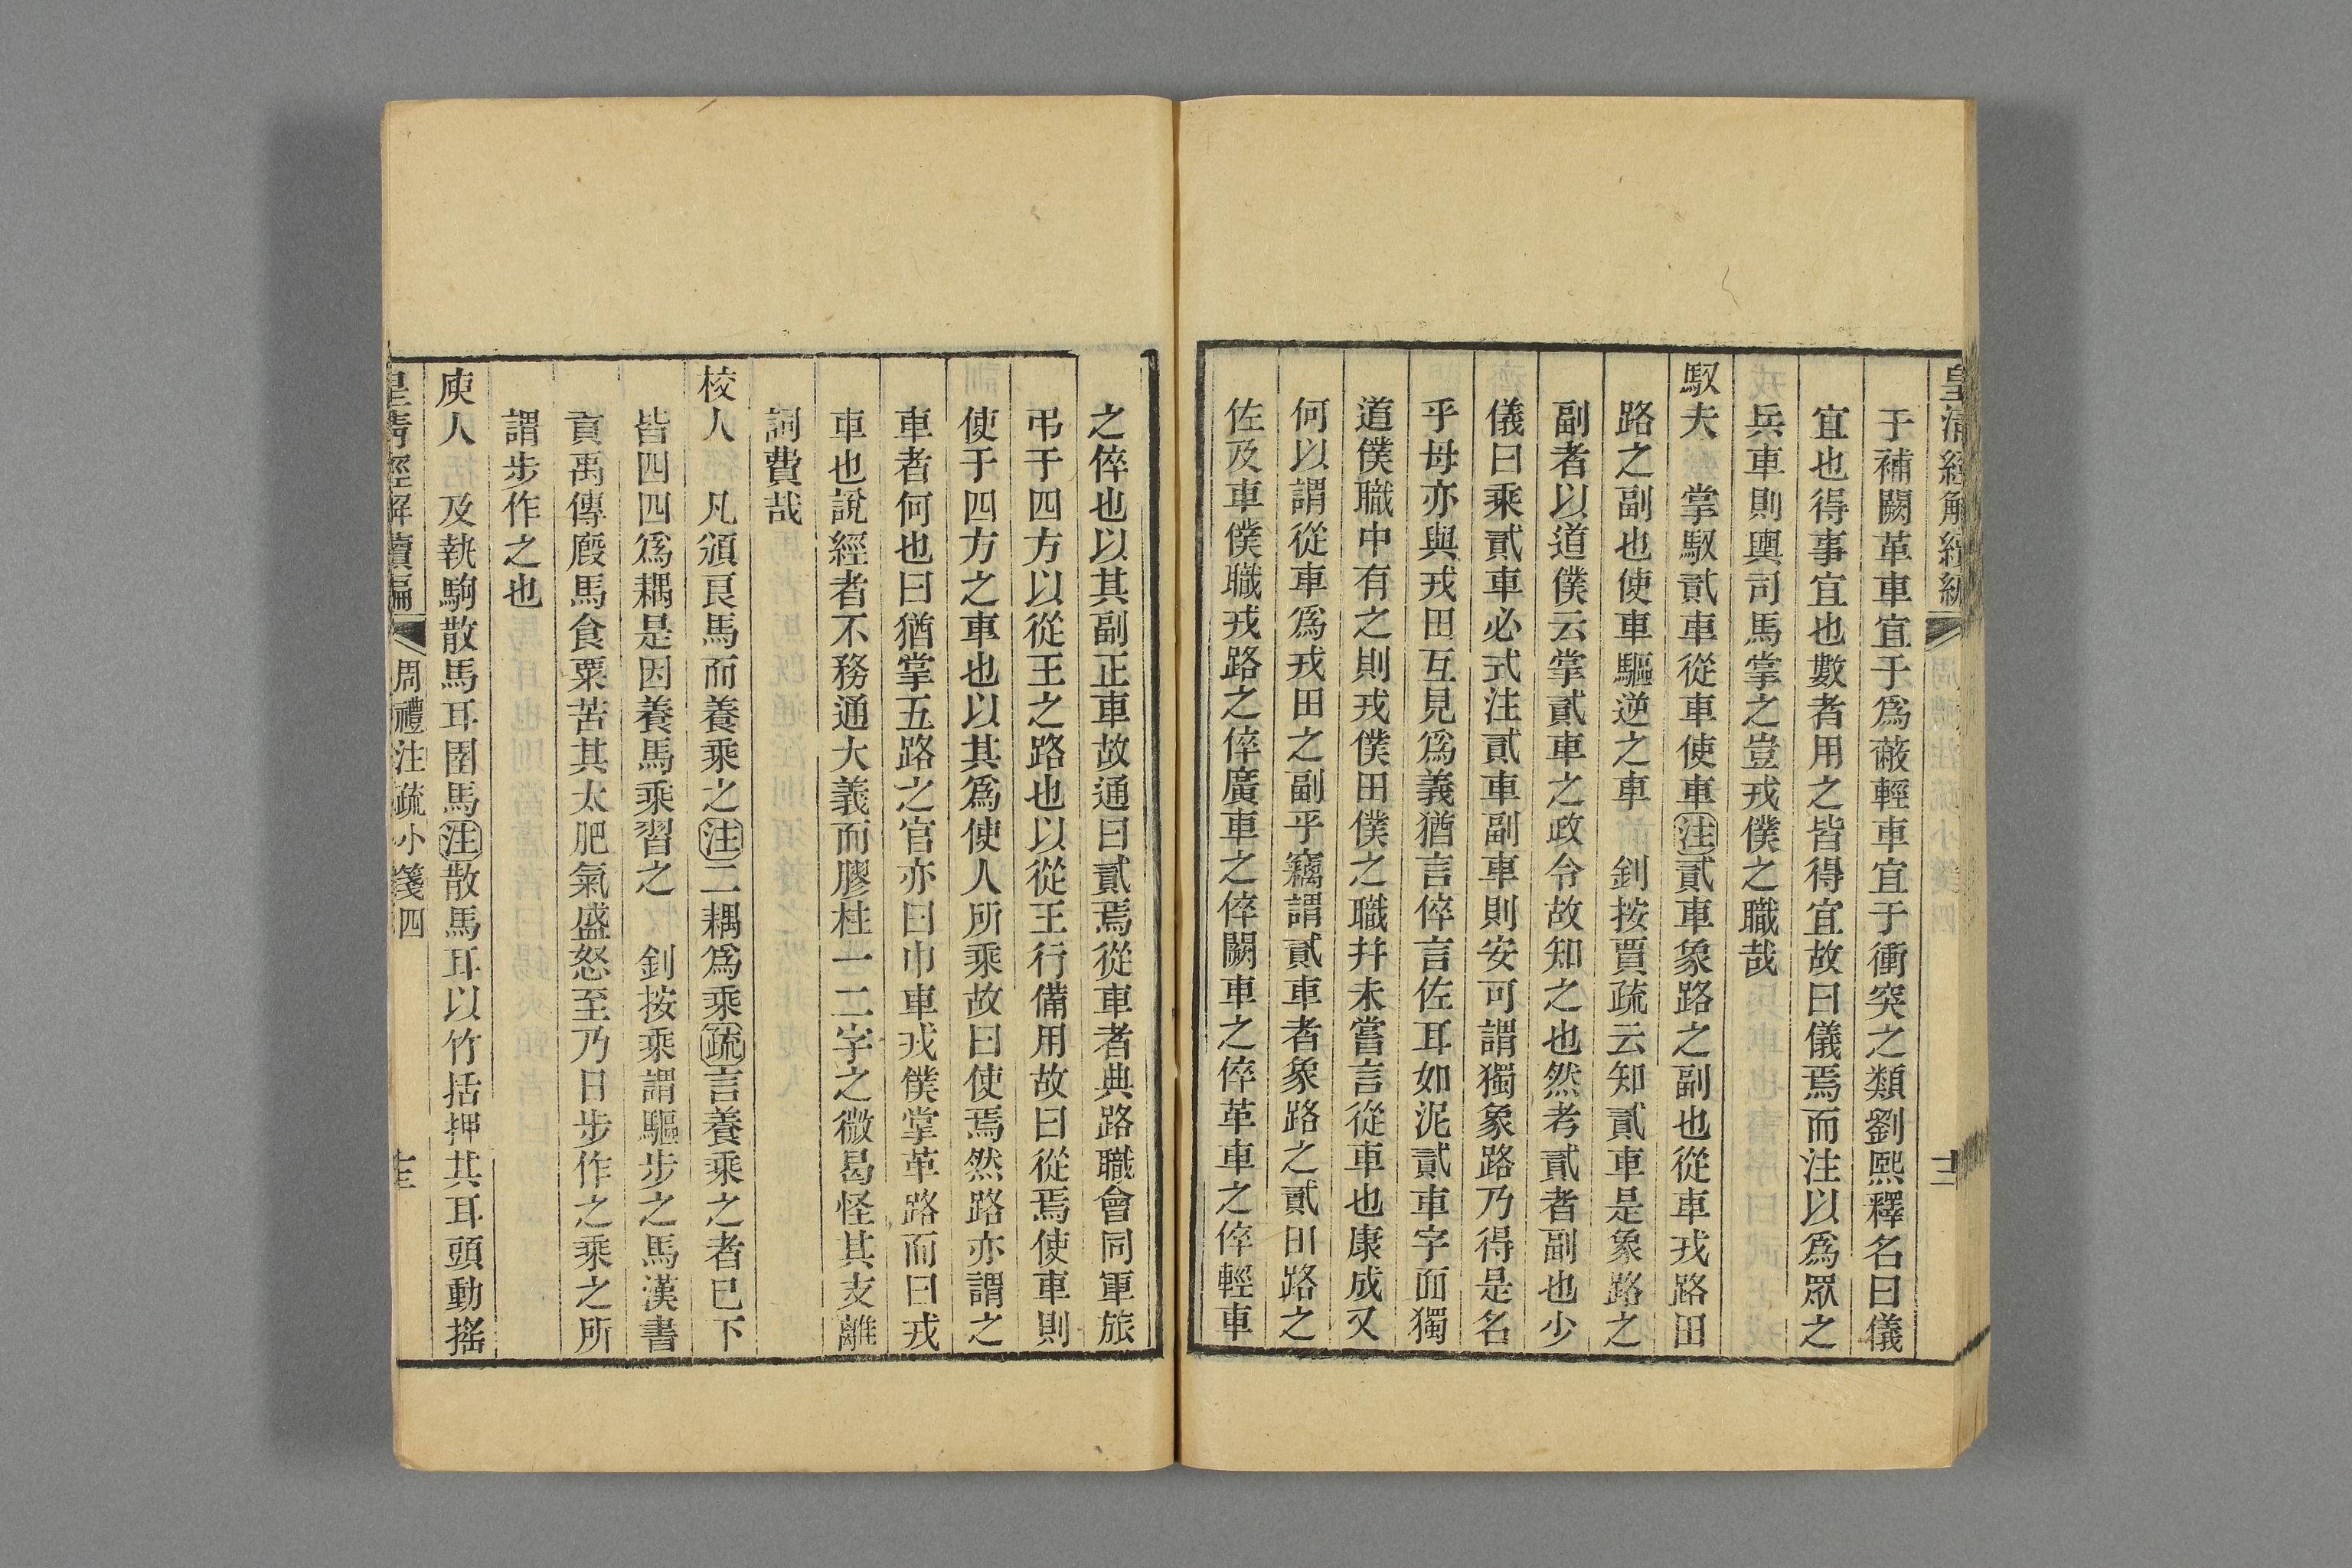 皇清經解續編
十二
于補闕革車宜于爲蔽輕車宜于衝突之類劉熙釋名曰儀
宜也得事宜也數者用之皆得宜故曰儀焉而注以爲眾之
兵車則輿司馬掌之豈戎僕之職哉
馭夫 掌馭貳車從車使車注貳車象路之副也從車戎路田
路之副也使車驅逆之車 釗按賈疏云知貳車是象路之
副者以道僕云掌貳車之政令故知之也然考貳者副也少
儀曰乘貳車必式注貳車副車則安可謂獨象路乃得是名
乎毋亦與戎田互見爲義猶言倅言佐耳如泥貳車字面獨
道僕職中有之則戎僕田僕之職幷未嘗言從車也康成又
何以謂從車爲戎田之副乎竊謂貳車者象路之貳田路之
佐及車僕職戎路之倅廣車之倅闕車之倅革車之倅輕車
之倅也以其副正車故通曰貳焉從車者典路職會同軍旅
弔于四方以從王之路也以從王行備用故曰從焉使車則
使于四方之車也以其爲使人所乘故曰使焉然路亦謂之
車者何也曰猶掌五路之官亦曰巾車戎僕掌革路而曰戎
車也說經者不務通大義而膠柱一二字之微曷怪其支離
詞費哉
校人 凡頒良馬而養乘之注二耦爲乘疏言養乘之者已下
皆四四爲耦是因養馬乘習之 釗按乘謂驅步之馬漢書
貢禹傳廄馬食粟苦其太肥氣盛怒至乃日步作之乘之所
謂步作之也
庾人 及執駒散馬耳圉馬注散馬耳以竹括押其耳頭動搖
皇清經解續編 周禮注疏小箋四
十三